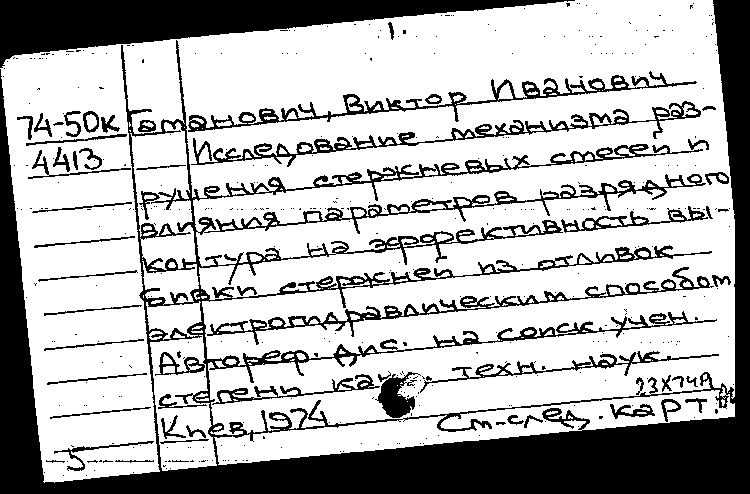 1.
74-50к Гаманович, Виктор Иванович
4413 Исследование механизма раз-
рушения стержневых смесей и
влияния параметров разрядного
контура на эффективность вы-
бивки стержней из отливок
электрогидравлическим способом
Автореф. дис. на соиск. учен.
степени кан техн. наук.
Киев, 1974 23X74
5 См-след. карт.